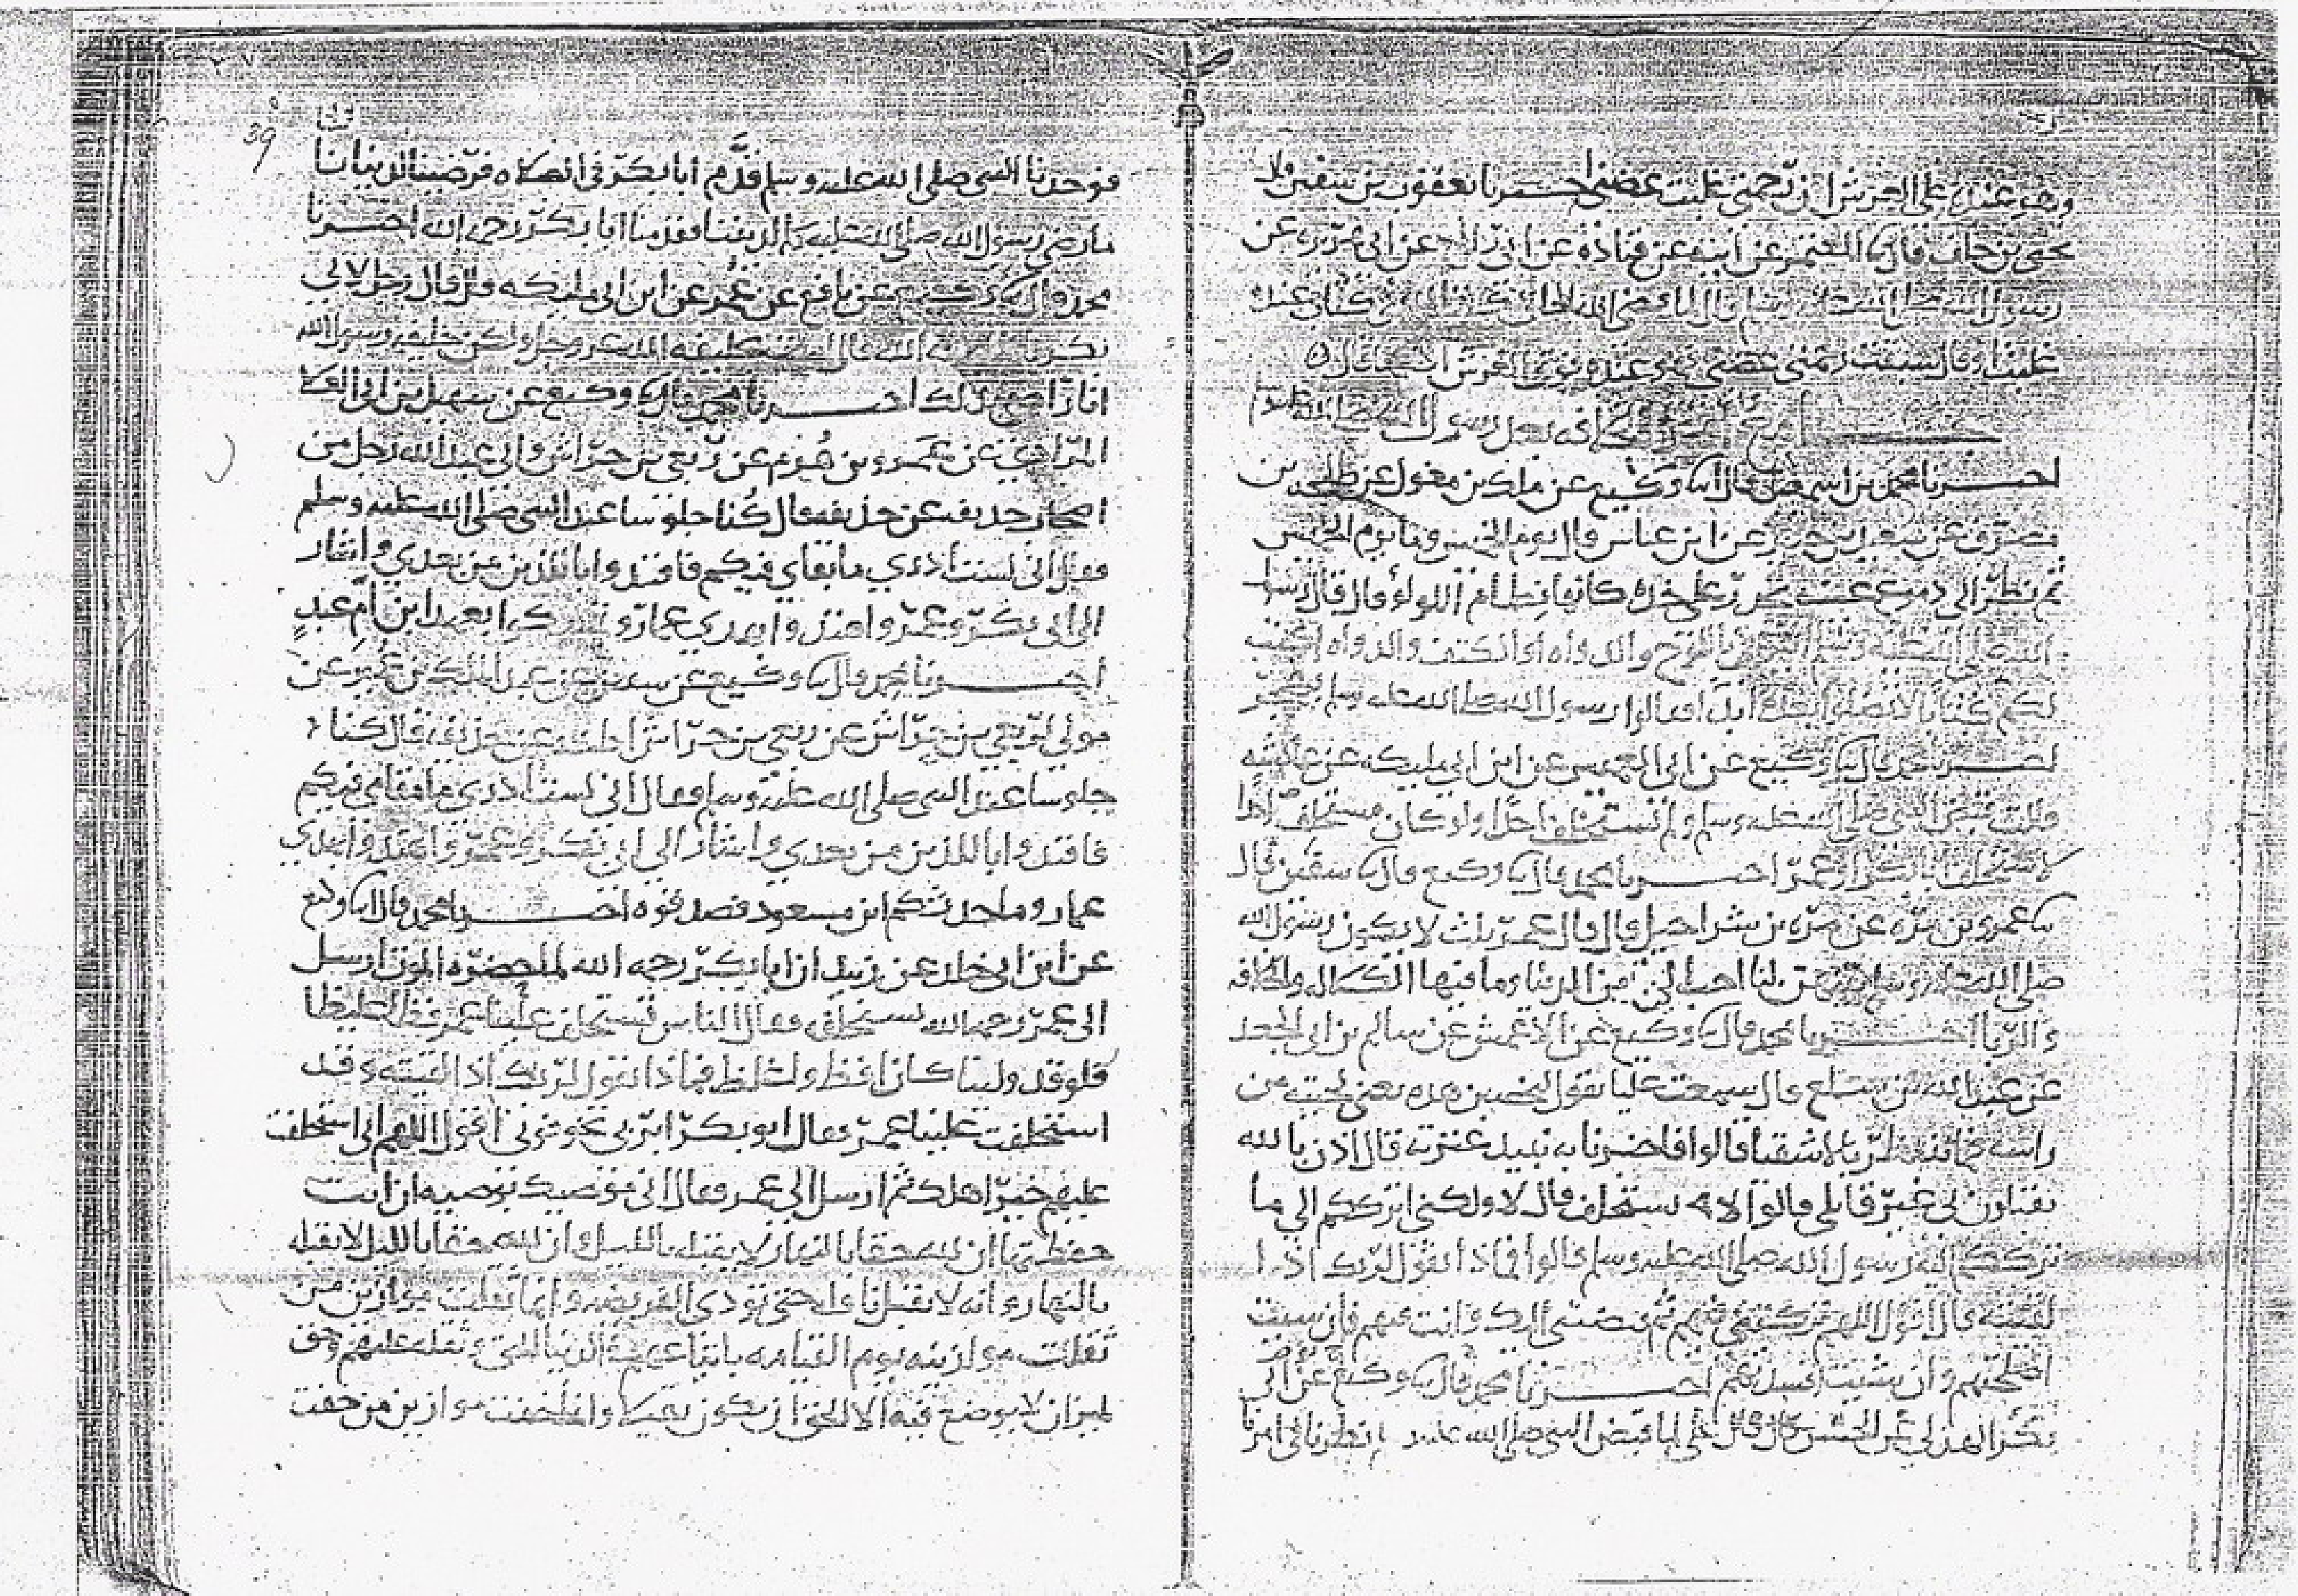 وهو عنده على العرش ان رحمتي غلبت غضبي اخبرنا يعقوب بن سفين
يحيى بن خلف قال المعتمر عن ابيه عن قتادة عن ابي رافع عن ابي هريرة عن
رسول الله صلى الله
سبقت رحمتي غضبي فهو عنده فوق العرش
رسول الله صلى الله عليه وسلم
اخبرنا محمد بن اسمعيل قال وكيع عن ملك بن مغول عن طلحة بن
مصرف عن سعيد بن جبير عن ابن عباس قال يوم الخميس وما يوم الخميس
ثم نظر الى دموع عينيه تحدر على خده كانها نظام اللولو قال قال رسول
الله صلى الله عليه وسلم باللوح والدواه او الكتف والدواه اكتب
لكم كتابا لا تضلوا بعده ابدا فقالوا رسول الله صلى الله عليه وسلم
اخبرنا محمد قال وكيع عن ابي العميس عن ابن ابي مليكه عن عائشه
قالت قبض النبي صلى الله عليه وسلم ولم يستخلف احدا ولو كان مستخلفا احدا
لاستخلف ابا بكر او عمر اخبرنا محمد قال وكيع قال سفين قال
عمرو بن مره عن مره بن شراحيل قال قال عمر ثلث لا يكون رسول الله
صلى الله عليه وسلم لنا احب الي من الدنيا وما فيها الكلاله والخلافه
والربا اخبرنا محمد قال وكيع عن الاعمش عن سالم بن ابي الجعد
عن عبد الله بن سبع قال سمعت عليا يقول لتخضبن هذه يعني لحيته من
راسه قالوا فاخبرنا به نبيد عترته قال اذن بالله
تقتلون بي غير قاتلي قالوا الا تستخلف قال لا ولكني اترككم الى ما
ترككم اليه رسول الله صلى الله عليه وسلم قالوا فماذا تقول لربك اذا
لقيته قال اقول اللهم تركتني فيهم ثم قبضتني اليك وانت فيهم فان شيت
اصلحتهم وان شيت افسدتهم اخبرنا محمد قال وكيع عن ابي
بكر الهذلي عن الحسن قال قال علي لما قبض النبي صلى الله عليه نظرنا في امرنا
39
فوجدنا النبي صلى الله عليه وسلم قدم ابا بكر في الصلاه فرضينا لدنيانا
ما رضي رسول الله صلى الله عليه وسلم لديننا فقدمنا ابا بكر رحمه الله اخبرنا
محمد قال وكيع عن نافع عن عمر عن ابن ابي مليكه قال قال رجل لابي
بكر يا خليفة الله قال لست بخليفه الله عز وجل ولكن خليفه رسول الله
انا راضي بذلك اخبرنا محمد قال وكيع عن سهل بن ابي العلا
المرادي عن عمرو بن هرم عن ربعي بن حراش وابي عبد الله رجل من
اصحاب حذيفه عن حذيفه قال كنا جلوسا عند النبي صلى الله عليه وسلم
فقال اني لست ادري ما بقاي فيكم فاقتدوا باللذين من بعدي واشار
الى ابي بكر وعمر واهتدوا بهدي عمار وتمسكوا بعهد ابن ام عبد
اخبرنا محمد قال وكيع عن سفين عن عبد الملك بن عمير عن
مولى لربعي بن حراش عن ربعي بن حراش عن حذيفه قال كنا
جلوسا عند النبي صلى الله عليه وسلم فقال اني لست ادري ما مقامي فيكم
فاقتدوا باللذين من بعدي واشار الى ابي بكر وعمر واهتدوا بهدي
عمار وما حدثكم ابن مسعود فصدقوه اخبرنا محمد قال وكيع
عن ابن ابي خلد عن زبيد ان ابا بكر رحمه الله لما حضره الموت ارسل
الى عمر رحمه الله يستخلفه فقال الناس تستخلف علينا عمر فظا غليظا
فلو قد ولينا كان افظ واغلظ فماذا تقول لربك اذا لقيته وقد
استخلفت علينا عمر فقال ابو بكر ابربي تخوفوني اقول اللهم اني استخلفت
عليهم خير اهلك ثم ارسل الى عمر فقال اني موصيك بوصيه ان انت
حفظتها ان لله حقا بالنهار لا يقبله بالليل وان لله حقا بالليل لا يقبله
بالنهار وانه لا يقبل نافله حتى تودى الفريضه وانما ثقلت موازين من
ثقلت موازينه يوم القيامه باتباعهم في الدنيا الحق وثقله عليهم وحق
لميزان لا يوضع فيه الا الحق ان يكون ثقيلا وانما خفت موازين من خفت